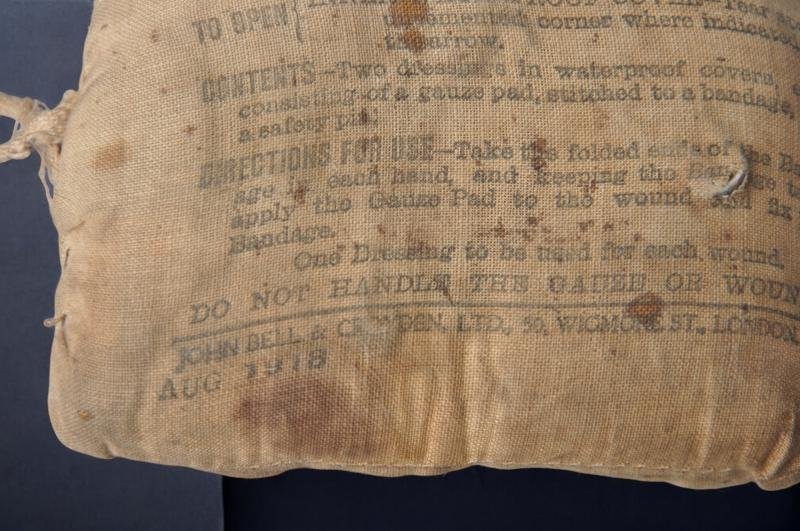 TO OPEN { PROOF COVER—Tear
uncemented corner where indicated
the arrow.
CONTENTS—Two dressings in waterproof covers,
consisting of a gauze pad, stitched to a bandage,
a safety pin.
DIRECTIONS FOR USE—Take the folded ends of the
age in each hand, and keeping the Bandage
apply the Gauze Pad to the wound and fix
Bandage.
One Dressing to be used for each wound.
DO NOT HANDLE THE GAUZE OR WOUN
JOHN BELL & CROYDEN, LTD., 50, WIGMORE ST., LONDON.
AUG 1918